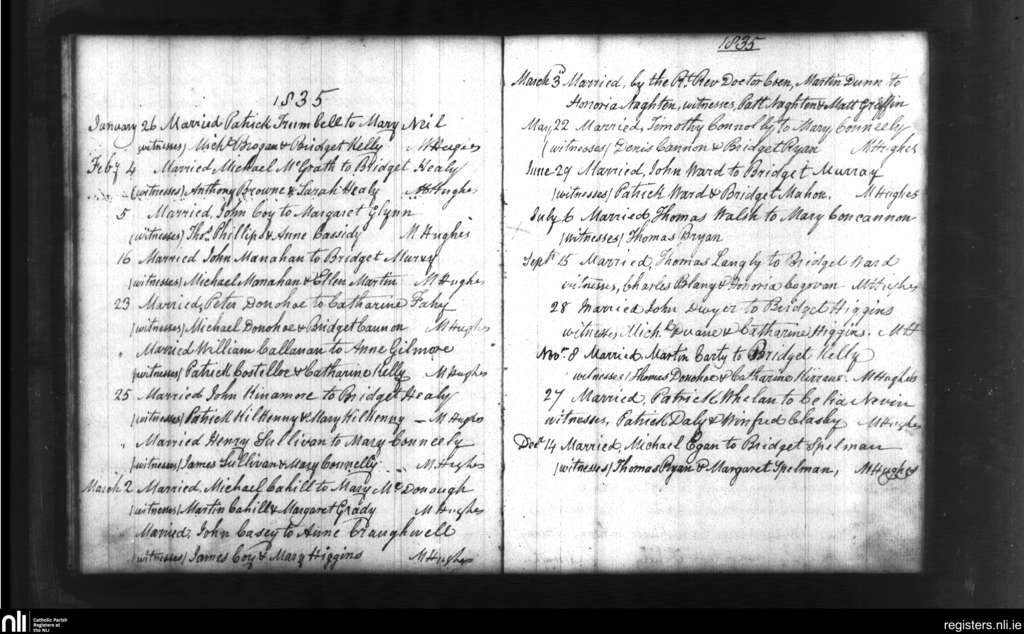 1835
January 26 Married Patrick Trumbell to Mary Neil
(witnesses) Mich.l Brogan & Bridget Kelly M Hughes
Feb.y 4 Married Michael McGrath to Bridget Healy
(witnesses) Anthony Browne & Sarah Healy M Hughes
5 Married, John Coy to Margaret Glynn
(witnesses) Tho.s Phillips & Anne Cassidy M Hughes
16 Married John Manahan to Bridget Murry
(witnesses) Michael Monahan & Ellen Martin M Hughes
23 Married, Peter Donohoe to Catharine Fahy
(witnesses) Michael Donohoe & Bridget Cannon M Hughes
" Married William Callanan to Anne Gilmore
(witnesses) Patrick Costelloe & Catharine Kelly M Hughes
25 Married John Kinamore to Bridget Healy
(witnesses) Patrick Kilkenny & Mary Kilkenny M Hughes
" Married Henry Sullivan to Mary Conneely
(witnesses) James Sullivan & Mary Connelly M Hughes
March 2 Married, Michael Cahill to Mary McDonough
(witnesses) Martin Cahill & Margaret Grady M Hughes
Married, John Casey to Anne Craughwell
(witnesses) James Coy & Mary Higgins M Hughes
1835
March 3 Married, by the Rt Rev Doctor Coen, Martin Dunn to
Honoria Naghten, witnesses, Patt Naghten & Matt Griffin
May 22 Married, Timothy Connolly to Mary Conneely
(witnesses) Denis Cannon & Bridget Ryan M Hughes
June 29 Married, John Ward to Bridget Murray
(witnesses) Patrick Ward & Bridget Mahon. M Hughes
July 6 Married, Thomas Walsh to Mary Concannon
(witnesses) Thomas Bryan
Sept.r 15 Married, Thomas Langly to Bridget Ward
witnesses, Charles Blany & Honoria M Hughes
28 Married John Dwyer to Bridget Higgins
witnesses, Mich.l Duane & Catharine Higgins. MH
Nov.r 8 Married Martin Carty to Bridget Kelly
witnesses) Thomas Donohoe & Catharine M Hughes
27 Married, Patrick Whelan to Celia Nevin
witnesses, Patrick Daly & Winifred Clasby M Hughes
Dec.r 14 Married, Michael Egan to Bridget Spelman
(witnesses) Thomas Ryan & Margaret Spelman, M Hughes
nli
Catholic Parish
Registers at
the NLI
registers.nli.ie